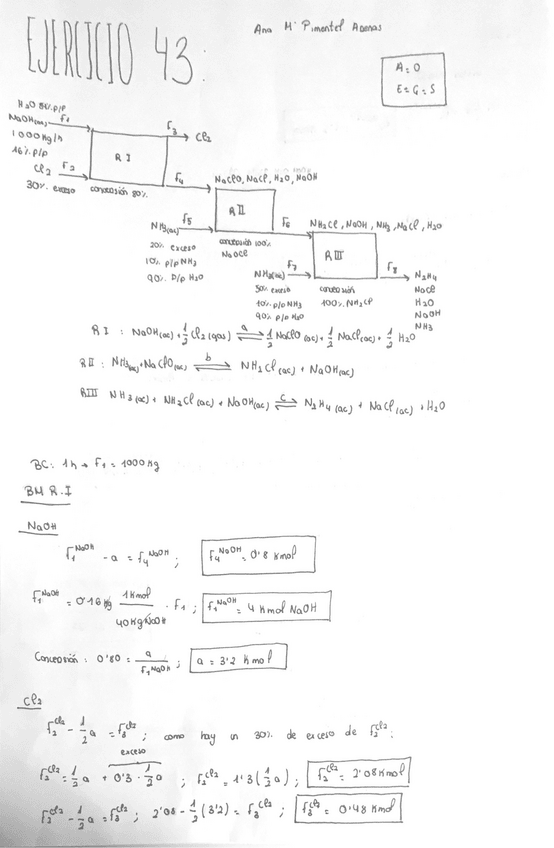 Ana Mª Pimentel Arenas
EJERCICIO 43:
A=0
E=G=S
H2O 84% p/p
NaOH(ac) F1
1000 Kg/h
16% p/p
Cl2 F2
30% exceso
R I
conversión 80%
F3 Cl2
F4 NaClO, NaCl, H2O, NaOH
R II
F5
NH3(ac)
20% exceso
10% p/p NH3
90% p/p H2O
conversión 100%
NaOCl
F6 NH2Cl, NaOH, NH3, NaCl, H2O
R III
F7
NH3(ac)
50% exceso
10% p/p NH3
90% p/p H2O
conversión
100% NH2Cl
F8 N2H4
NaCl
H2O
NaOH
NH3
R I : NaOH(ac) + 1/2 Cl2(gas) ⇌a 1/2 NaClO(ac) + 1/2 NaCl(ac) + 1/2 H2O
R II : NH3(ac) + NaClO(ac) ⇌b NH2Cl(ac) + NaOH(ac)
R III NH3(ac) + NH2Cl(ac) + NaOH(ac) ⇌c N2H4(ac) + NaCl(ac) + H2O
BC: 1h → F1 = 1000 Kg
BM R.I
NaOH
F1^NaOH - a = F4^NaOH ; F4^NaOH = 0'8 Kmol
F1^NaOH = 0'16 Kg 1 Kmol/40 Kg NaOH · F1 ; F1^NaOH = 4 Kmol NaOH
Conversión : 0'80 = a/F1^NaOH ; a = 3'2 Kmol
Cl2
F2^Cl2 - 1/2 a = F3^Cl2 ; como hay un 30% de exceso de F2^Cl2 :
exceso
F2^Cl2 = 1/2 a + 0'3 · 1/2 a ; F2^Cl2 = 1'3 (1/2 a) ; F2^Cl2 = 2'08 Kmol
F2^Cl2 - 1/2 a = F3^Cl2 ; 2'08 - 1/2 (3'2) = F3^Cl2 ; F3^Cl2 = 0'48 Kmol